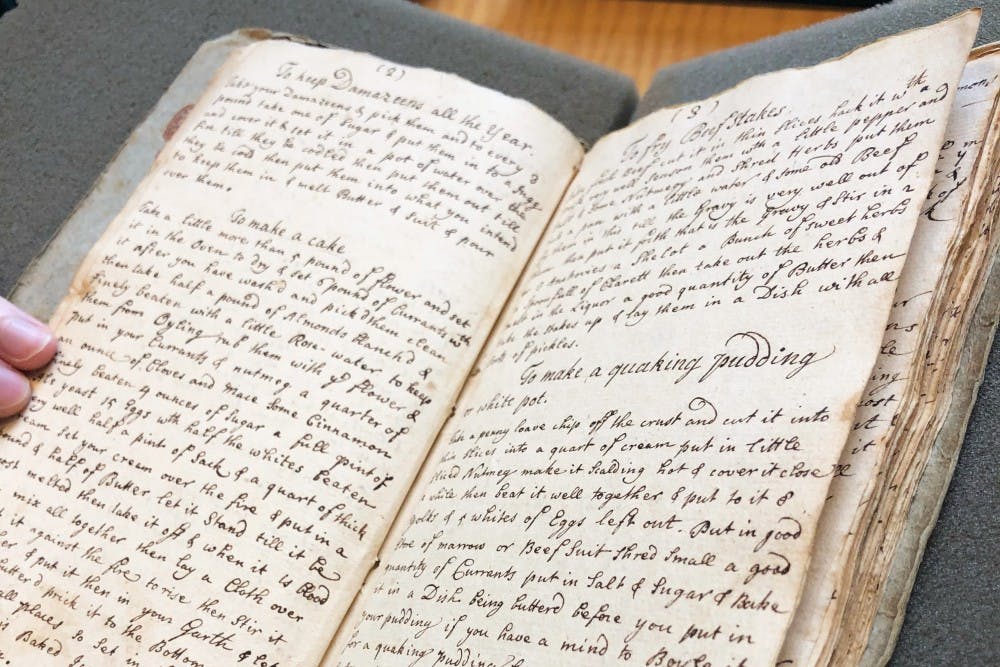 (2)
To keep Damazeens all the Year
Take your Damazeens & pick them and to every
pound take one of Sugar & put them in to a Jugg
and cover it & set it in a pot of water over the
fire till they be codled then put them out till
they be cold then put them into what you intend
to keep them in & melt Butter & Suit & pour
over them.
To make a cake
Take a little more than 5 pound of flower and set
it in the Oven to dry & set 6 pound of Currants with
it after you have washd and pickd them clean
then take half a pound of Almonds blanchd &
finely beaten with a little Rose-water to keep
them from Oyling rub them with ye flower &
put in your Currants & nutmeg a quarter of
an ounce of Cloves and Mace Some Cinnamon
beaten 4 ounces of Sugar a full pint of
yeast 15 Eggs with half the whites beaten
very well half a pint of Sack & a quart of thick
cream Set your cream over the fire & put in a
pound & half of Butter let it Stand till it be
most melted then take it off & when it is blood
mix all together then lay a Cloth over
it against the fire to rise then Stir it
& put it then in your Garth & let
prick it to the Bottom
all places So Set in
is Baked
(3)
To fry Beef Stakes
cut it in thin Slices hack it with a
and Season them with a little pepper and
Some Nutmeg and Shred Herbs put them
in a pan with a little water & some
them in this till the Gravy is very well out of
put it with that is the Gravy & Stir in 2
Anchovies a Shelot a Bunch of Sweet herbs
Spoonfull of Clarett then take out the herbs &
in the Liquor a good quantity of Butter then
the Stakes up & lay them in a Dish with all
of pickles.
To make a quaking pudding
or white pot.
Take a penny loave chip off the crust and cut it into
thin Slices into a quart of cream put in little
Sliced Nutmeg make it Scalding hot & cover it close
a while then beat it well together & put to it 8
yolks & 5 whites of Eggs left out. But in good
of marrow or Beef Suit Shred Small a good
quantity of Currants put in Salt & Sugar & Bake
it in a Dish being butterd before you put in
your pudding if you have a mind to Boyle it
for a quaking Pudding